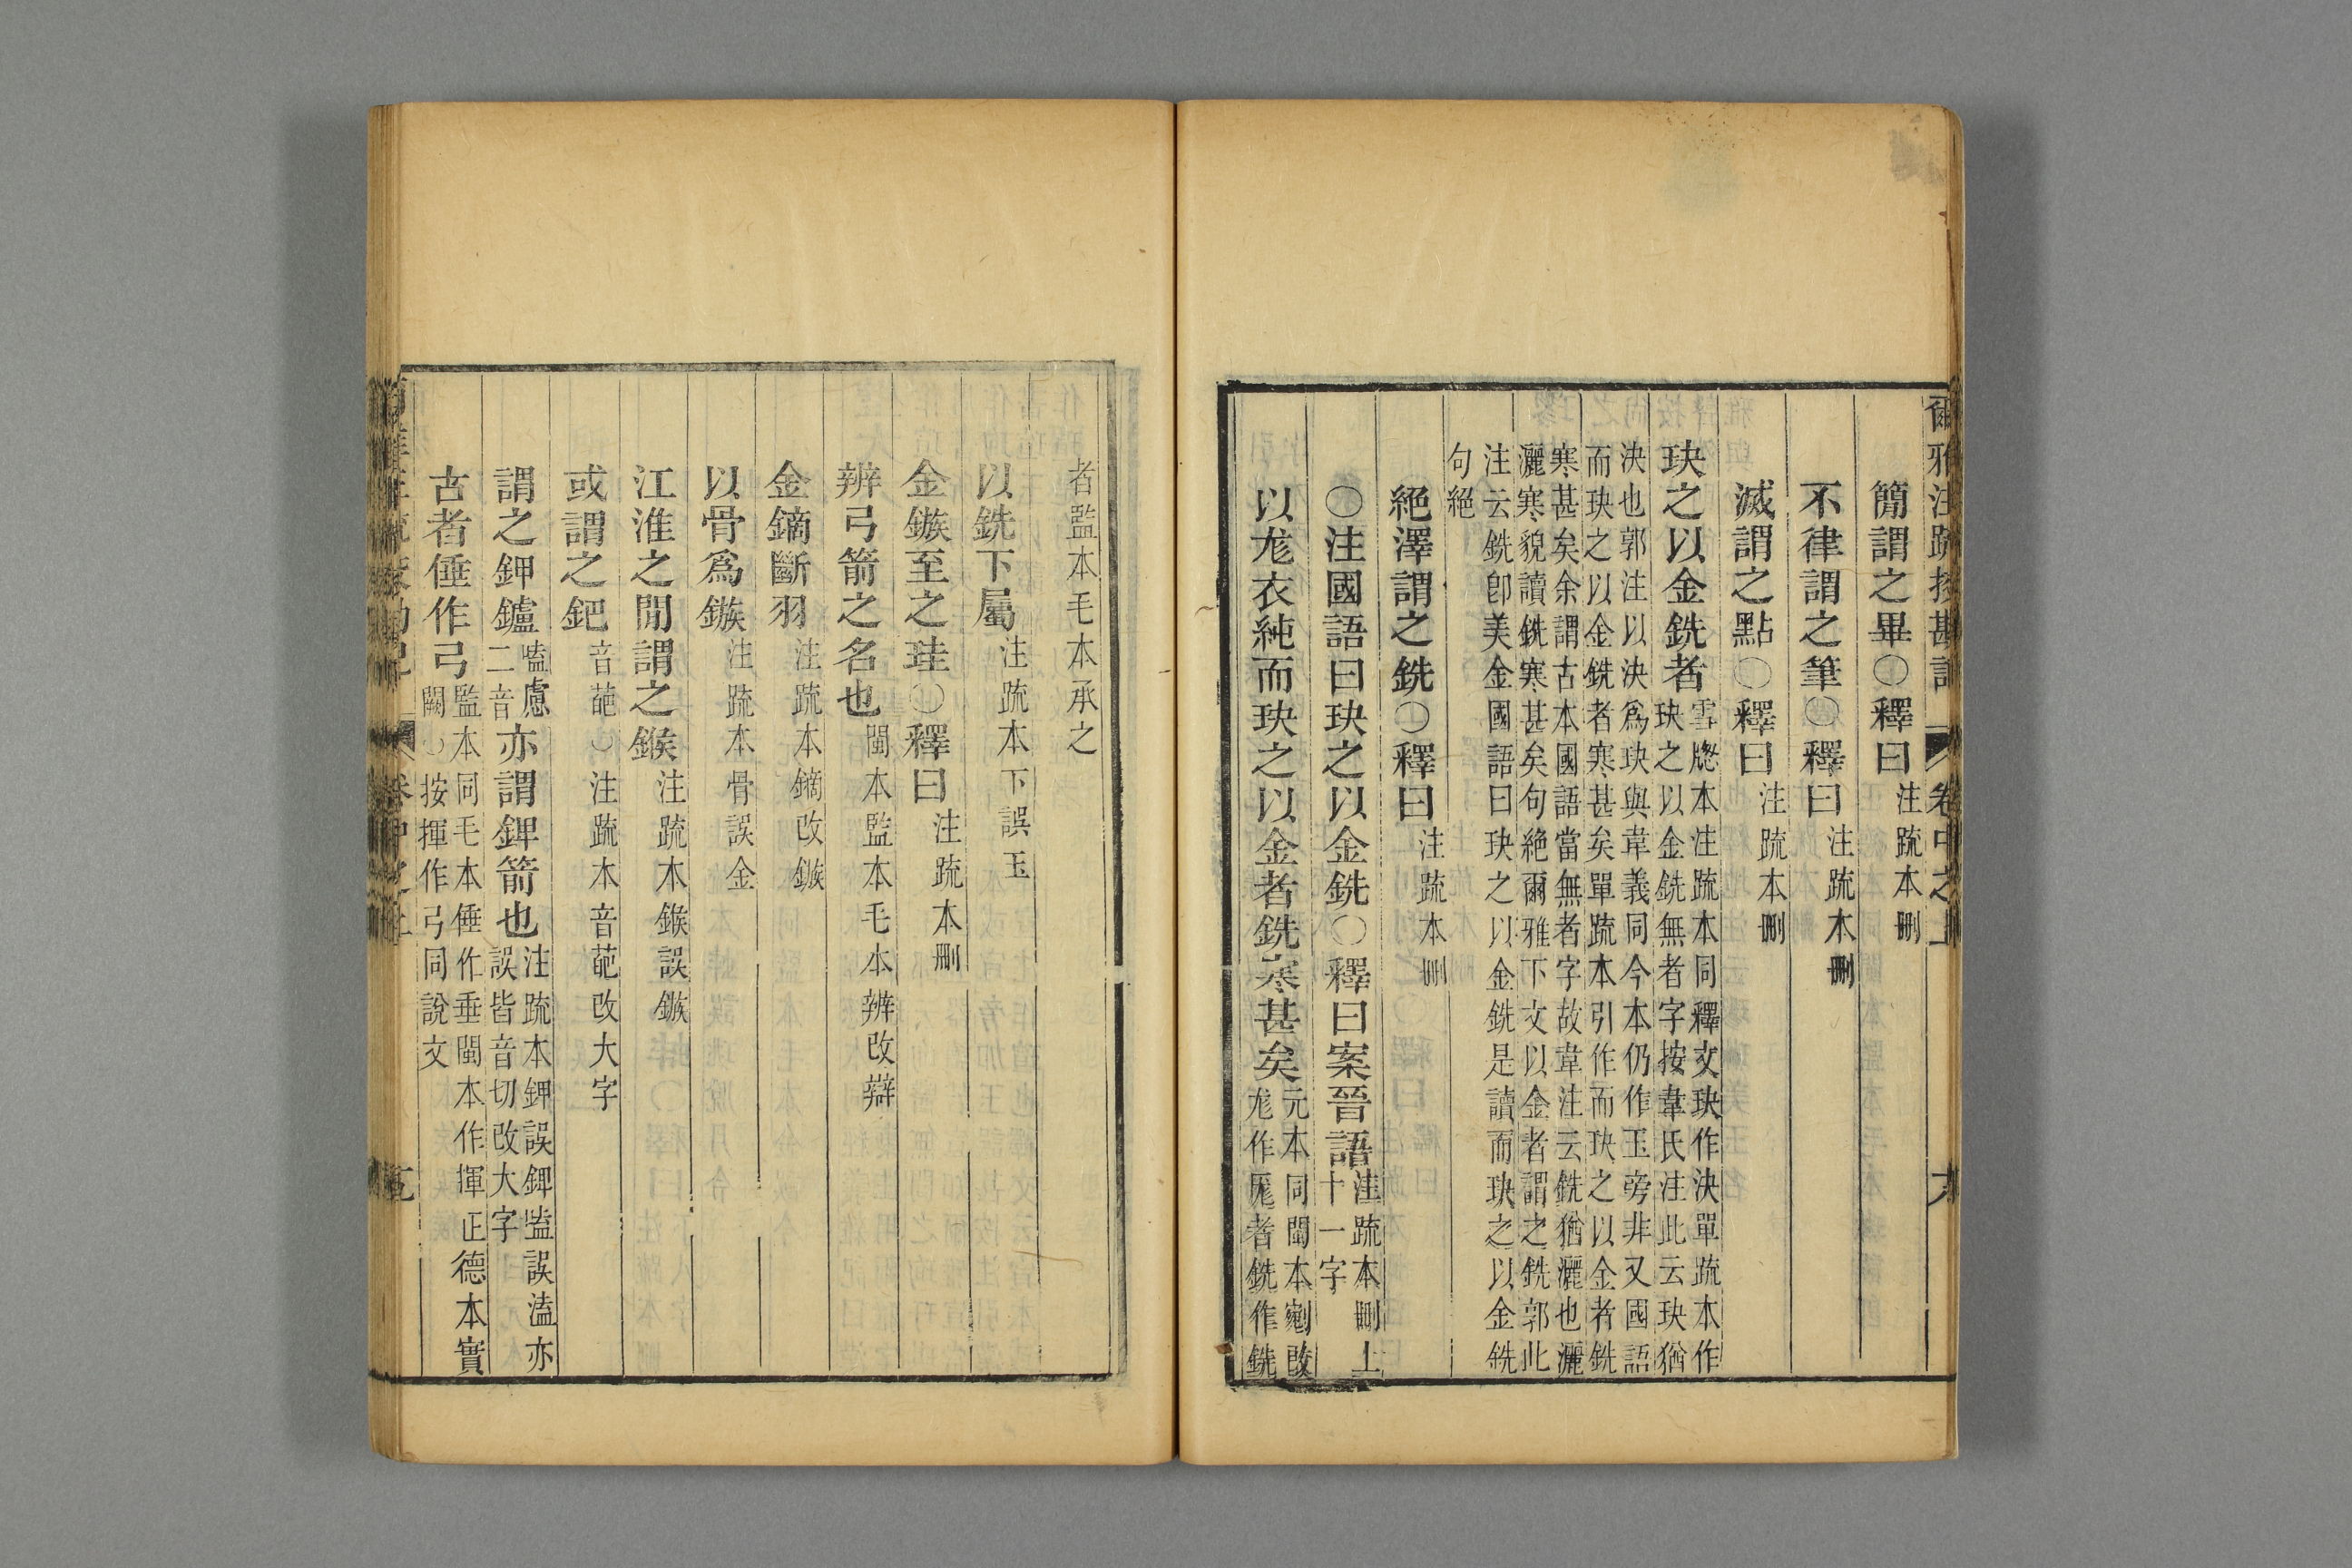 爾雅注疏挍勘記 卷中之上 六
簡謂之畢〇釋曰注疏本刪
不律謂之筆〇釋曰注疏本刪
滅謂之點〇釋曰注疏本刪
玦之以金銑者雪牕本注疏本同釋文玦作決單疏本作
玦之以金銑無者字按韋氏注此云玦猶
決也郭注以決爲玦與韋義同今本仍作玉旁非又國語
而玦之以金銑者寒甚矣單疏本引作而玦之以金者銑
寒甚矣余謂古本國語當無者字故韋注云銑猶灑也灑
灑寒貌讀銑寒甚矣句絕爾雅下文以金者謂之銑郭此
注云銑卽美金國語曰玦之以金銑是讀而玦之以金銑
句絕
絕澤謂之銑〇釋曰注疏本刪
〇注國語曰玦之以金銑〇釋曰案晉語注疏本刪上
十一字
以尨衣純而玦之以金者銑寒甚矣元本同閩本剜改
尨作厖者銑作銑
者監本毛本承之
以銑下屬注疏本下誤玉
金鏃至之珪〇釋曰注疏本刪
辨弓箭之名也閩本監本毛本辨改辯
金鏑斷羽注疏本鏑改鏃
以骨爲鏃注疏本骨誤金
江淮之閒謂之鍭注疏本鍭誤鏃
或謂之鈀音葩〇注疏本音葩改大字
謂之鉀鑪嗑慮
二音亦謂錍箭也注疏本鉀誤錍嗑誤溘亦
誤皆音切改大字
古者倕作弓監本同毛本倕作垂閩本作揮正德本實
闕〇按揮作弓同說文